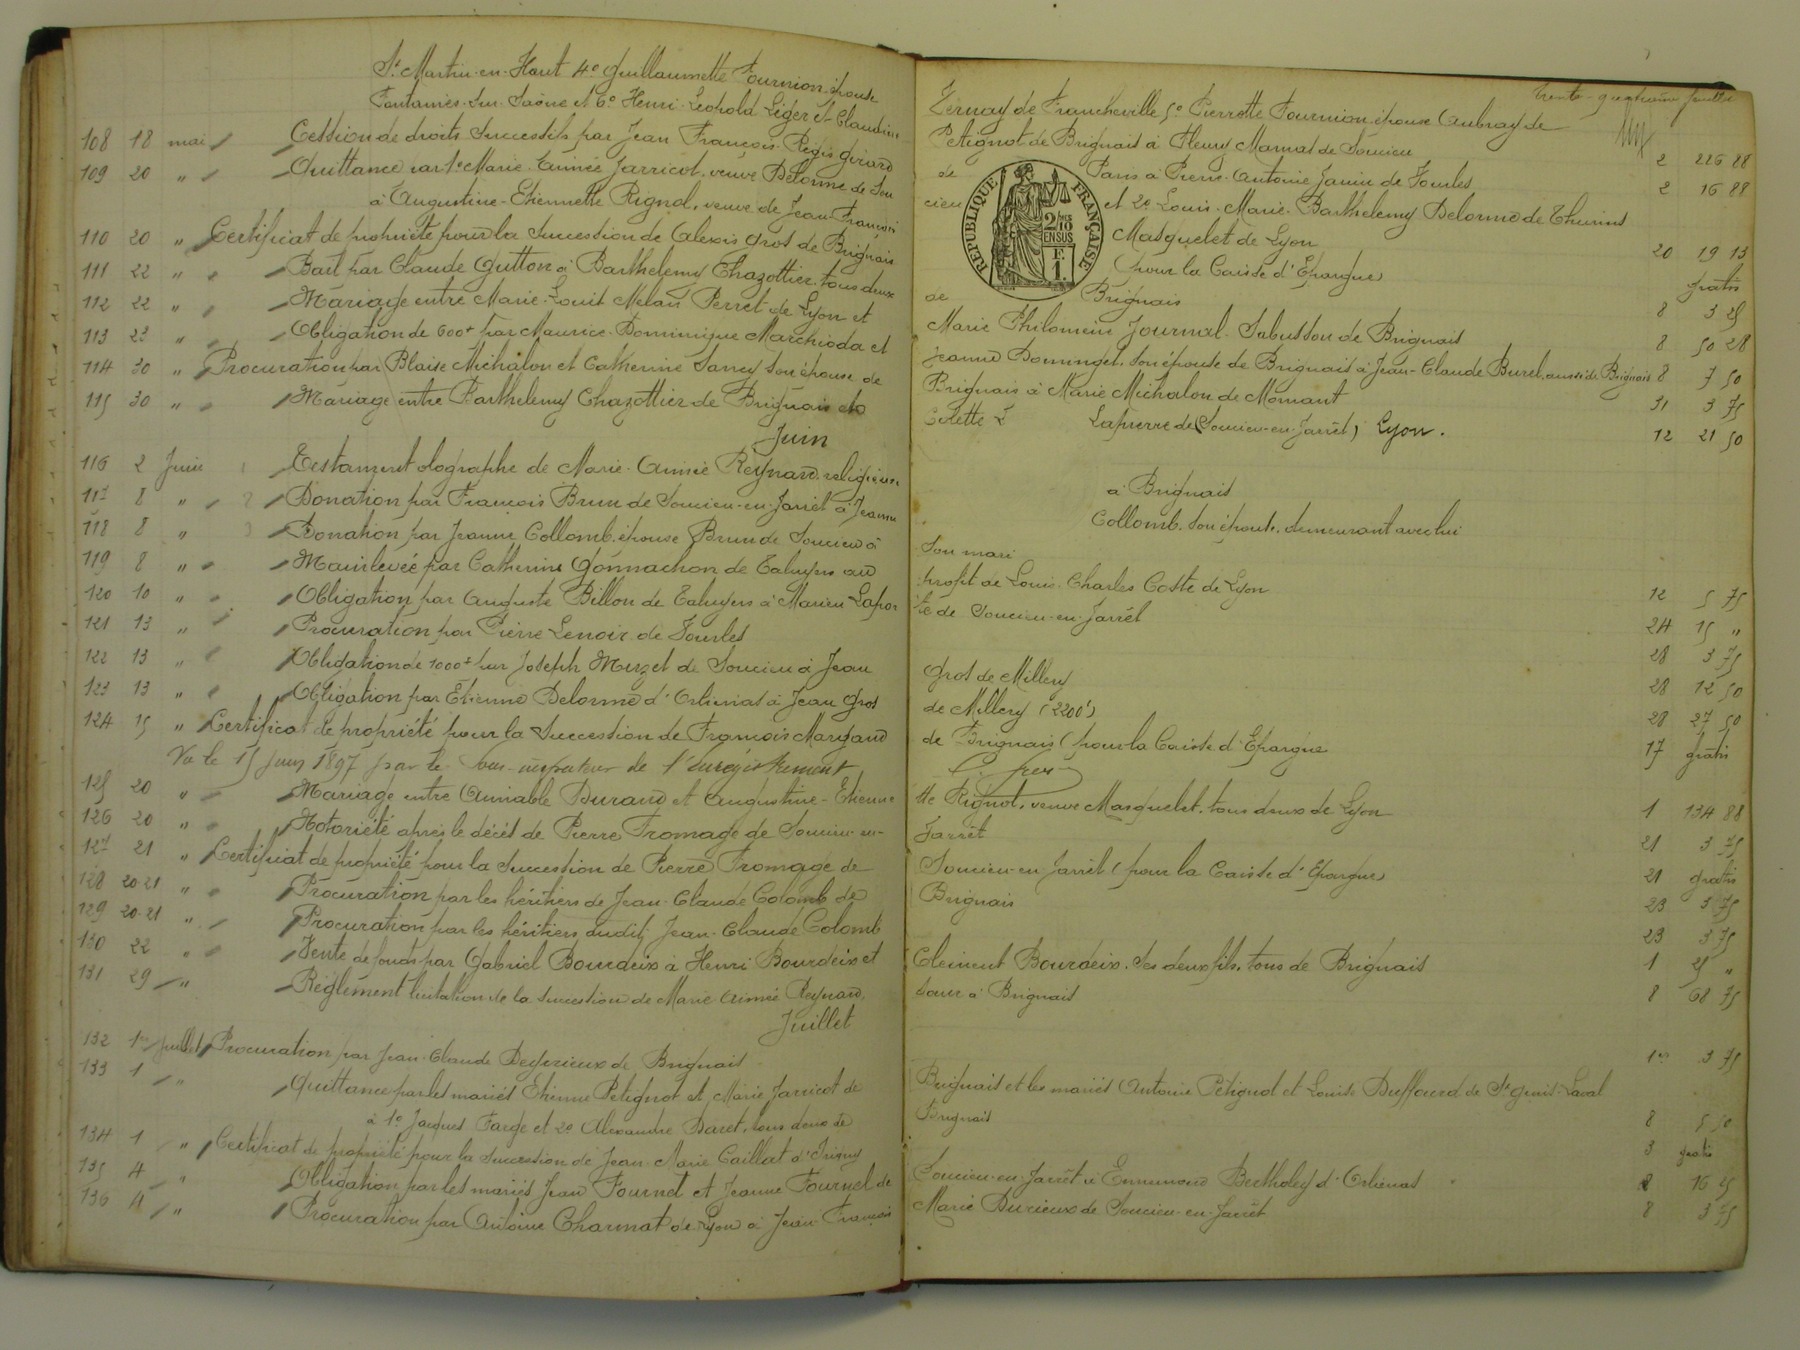 trente-quatrième feuillet
St Martin-en-Haut 4o Guillaumette Fournion épouse Ternay de Francheville 5o Pierrette Fournion épouse Aubray de
Fontaines-sur-Saône et 6o Henri-Leopold Liger et Claudine Petignot de Brignais à Fleury Marnas de Soucieu
108 18 mai Cession de droits successifs par Jean François Régis Girard de Paris à Pierre-Antoine Janin de Vourles 2 226 88
109 20 " Quittance par 1o Marie-Aimée Jarricot, veuve Delorme de Soucieu et 2o Louis-Marie-Barthelemy Delorme de Thurins 2 16 88
à Augustine-Etiennette Rignol, veuve de Jean-François Masquelet de Lyon
110 20 " Certificat de propriété pour la succession de Alexis Gros de Brignais (pour la Caisse d'Epargne) 20 19 13
gratis
111 22 " Bail par Claude Gutton à Barthelemy Chazottier tous deux de Brignais 8 3 25
112 22 " Mariage entre Marie-Louis Melan Perret de Lyon et Marie Philomène Journal-Sabusson de Brignais 8 50 28
113 23 " Obligation de 600f par Maurice-Dominique Marchioda et Jeanne Dominget, son épouse de Brignais à Jean-Claude Burel, aussi de Brignais 8 7 50
114 30 " Procuration par Blaise Michalon et Catherine Sancy son épouse de Brignais à Marie Michalon de Mornant 31 3 75
115 30 " Mariage entre Barthelemy Chazottier de Brignais et Colette Lapierre de (Soucieu-en-Jarrêt) Lyon. 12 21 50
Juin
116 2 Juin Testament olographe de Marie-Aimée Reynard religieuse à Brignais
117 8 " Donation par François Brun de Soucieu-en-Jarrêt à Jeanne Collomb, son épouse, demeurant avec lui
118 8 " Donation par Jeanne Collomb, épouse Brun de Soucieu à son mari
119 8 " Mainlevée par Catherine Gonnachon de Taluyers au profit de Louis-Charles Coste de Lyon 12 5 75
120 10 " Obligation par Auguste Billon de Taluyers à Marieu Laporte de Soucieu-en-Jarrêt 24 15 "
121 13 " Procuration par Pierre Lenoir de Vourles 28 3 75
122 13 " Obligation de 1000f par Joseph Muzel de Soucieu à Jean Gros de Millery 28 12 50
123 13 " Obligation par Etienne Delorme d'Orliénas à Jean Gros de Millery (2200f) 28 27 50
124 15 " Certificat de propriété pour la succession de François Margand de Brignais (pour la Caisse d'Epargne 17 gratis
Vu le 15 juin 1897 par le sous-inspecteur de l'Enregistrement
125 20 " Mariage entre Aimable Durand et Augustine-Etiennette Rignol, veuve Masquelet, tous deux de Lyon 1 134 88
126 20 " Notoriété après le décès de Pierre Fromage de Soucieu-en-Jarrêt 21 3 75
127 21 " Certificat de propriété pour la succession de Pierre Fromage de Soucieu-en-Jarrêt (pour la Caisse d'Epargne) 21 gratis
128 20-21 " Procuration par les héritiers de Jean-Claude Colomb de Brignais 23 3 75
129 20-21 " Procuration par les héritiers dudit Jean-Claude Colomb 23 3 75
130 22 " Vente de fonds par Gabriel Bourdeix à Henri Bourdeix et Clément Bourdeix, ses deux fils, tous de Brignais 1 25 "
131 29 " Règlement liquidation de la succession de Marie Aimée Reynard, sœur à Brignais 8 68 75
Juillet
132 1er juillet Procuration par Jean-Claude Desgrieux de Brignais 1er 3 75
133 1 " Quittance par les mariés Etienne Petignot et Marie Jarricot de Brignais et les mariés Antoine Pétignot et Louise Duffourd de St Genis-Laval
à 1o Jacques Farge et 2o Alexandre Daret, tous deux de Brignais 8 5 50
134 1 " Certificat de propriété pour la succession de Jean-Marie Caillat d'Irigny 3 gratis
135 4 " Obligation par les mariés Jean Fournel et Jeanne Fournel de Soucieu-en-Jarrêt à Ennemond Bertholey d'Orliénas 8 16 25
136 4 " Procuration par Antoine Charmat de Lyon à Jean-François Marie Durieux de Soucieu-en-Jarrêt 8 3 75
RÉPUBLIQUE FRANÇAISE
2/10 EN SUS
F. 1.